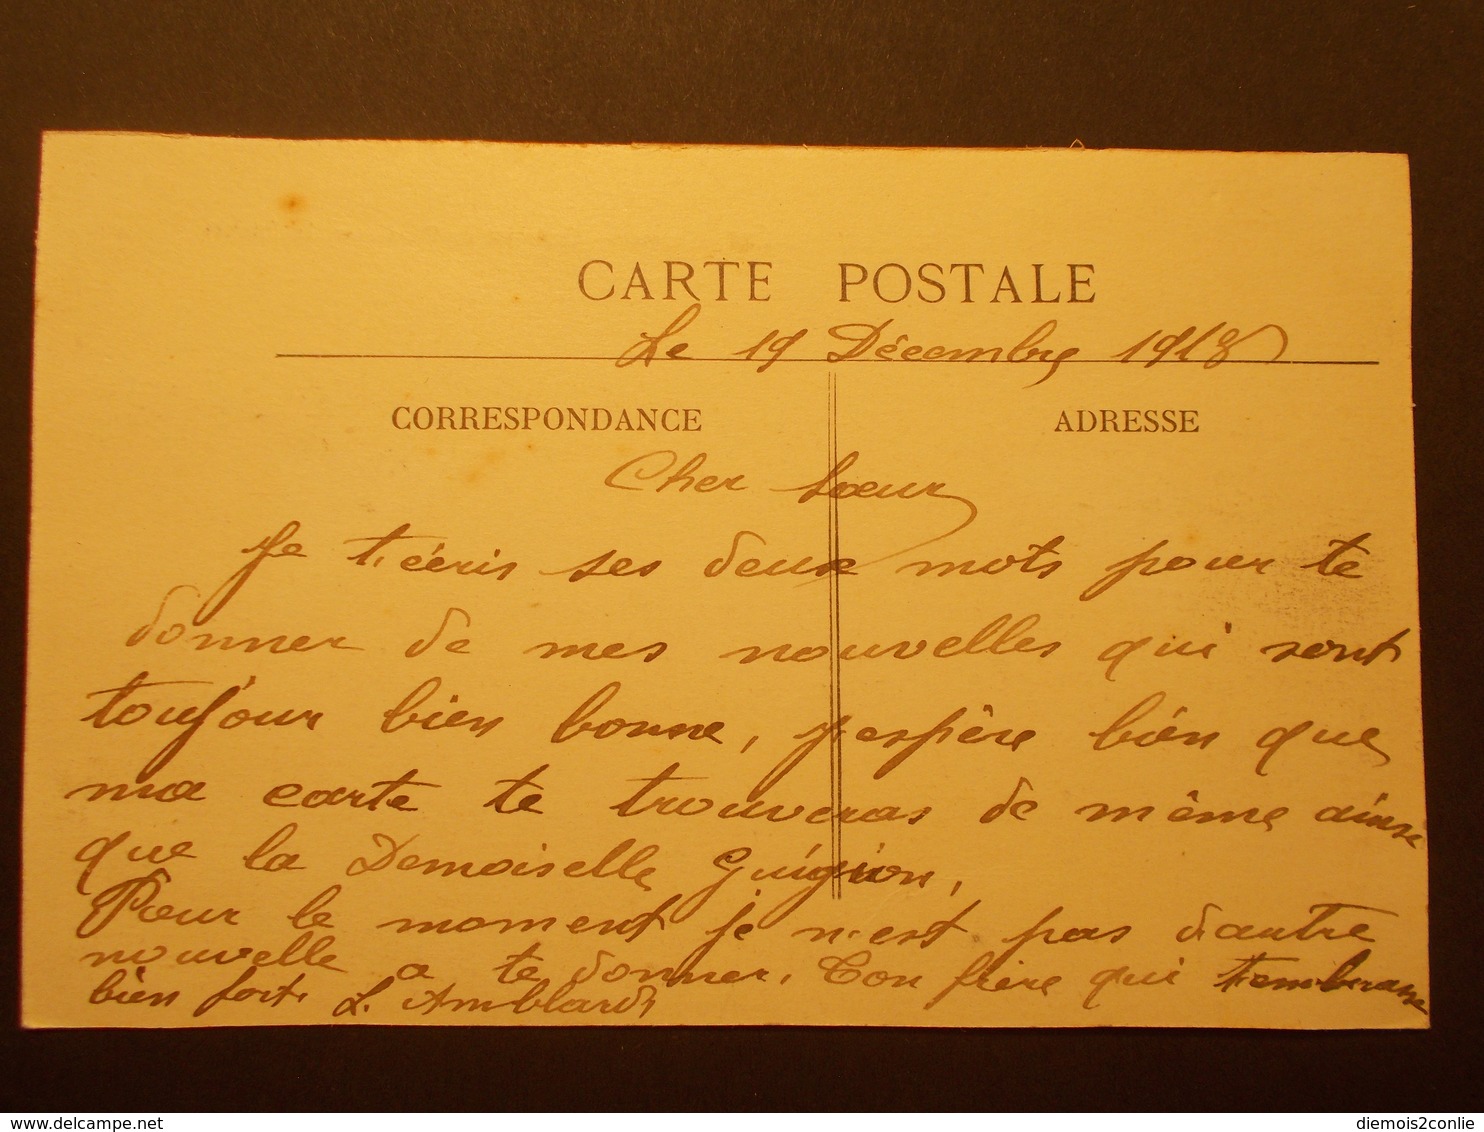 CARTE POSTALE
Le 19 Décembre 1918
CORRESPONDANCE ADRESSE
Cher Sœur
Je t'écris ses deux mots pour te
donner de mes nouvelles qui sont
toujour bien bonne, j'espère bien que
ma carte te trouveras de même ainsi
que la Demoiselle Guignon,
Pour le moment je n'est pas d'autre
nouvelle a te donner. Ton frère qui t'embrasse
bien fort. L. Amblard
delcampe.net
diemois2conlie